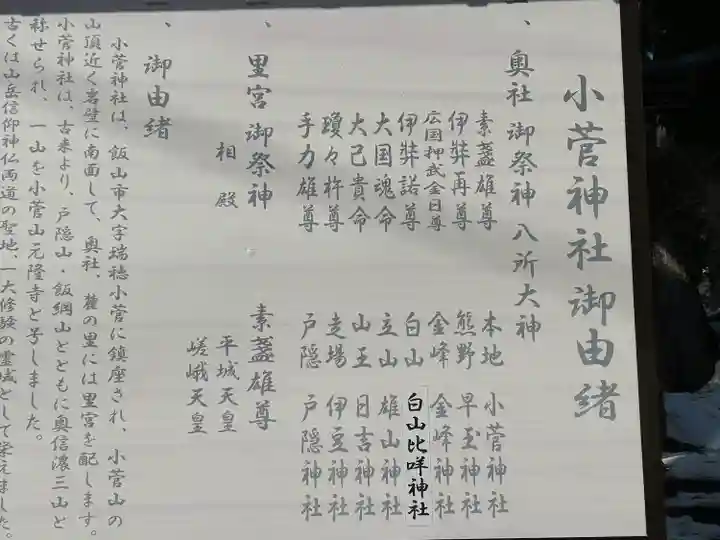 小菅神社御由緒
、奥社 御祭神 八所大神
素盞雄尊 本地 小菅神社
伊弉再尊 熊野 早玉神社
広国押武金日尊 金峰 金峰神社
伊弉諾尊 白山 白山比咩神社
大国魂命 立山 雄山神社
大己貴命 山王 日吉神社
瓊々杵尊 走場 伊豆神社
手力雄尊 戸隠 戸隠神社
、里宮 御祭神 素盞雄尊
相殿 平城天皇
嵯峨天皇
、御由緒
小菅神社は、飯山市大字瑞穂小菅に鎮座され、小菅山の
山頂近く岩壁に南面して、奥社、麓の里には里宮を配します。
小菅神社は、古来より、戸隠山・飯綱山とともに奥信濃三山と
称せられ、一山を小菅山元隆寺と号しました。
古くは山岳信仰神仏両道の聖地、一大修験の霊域として栄えました。